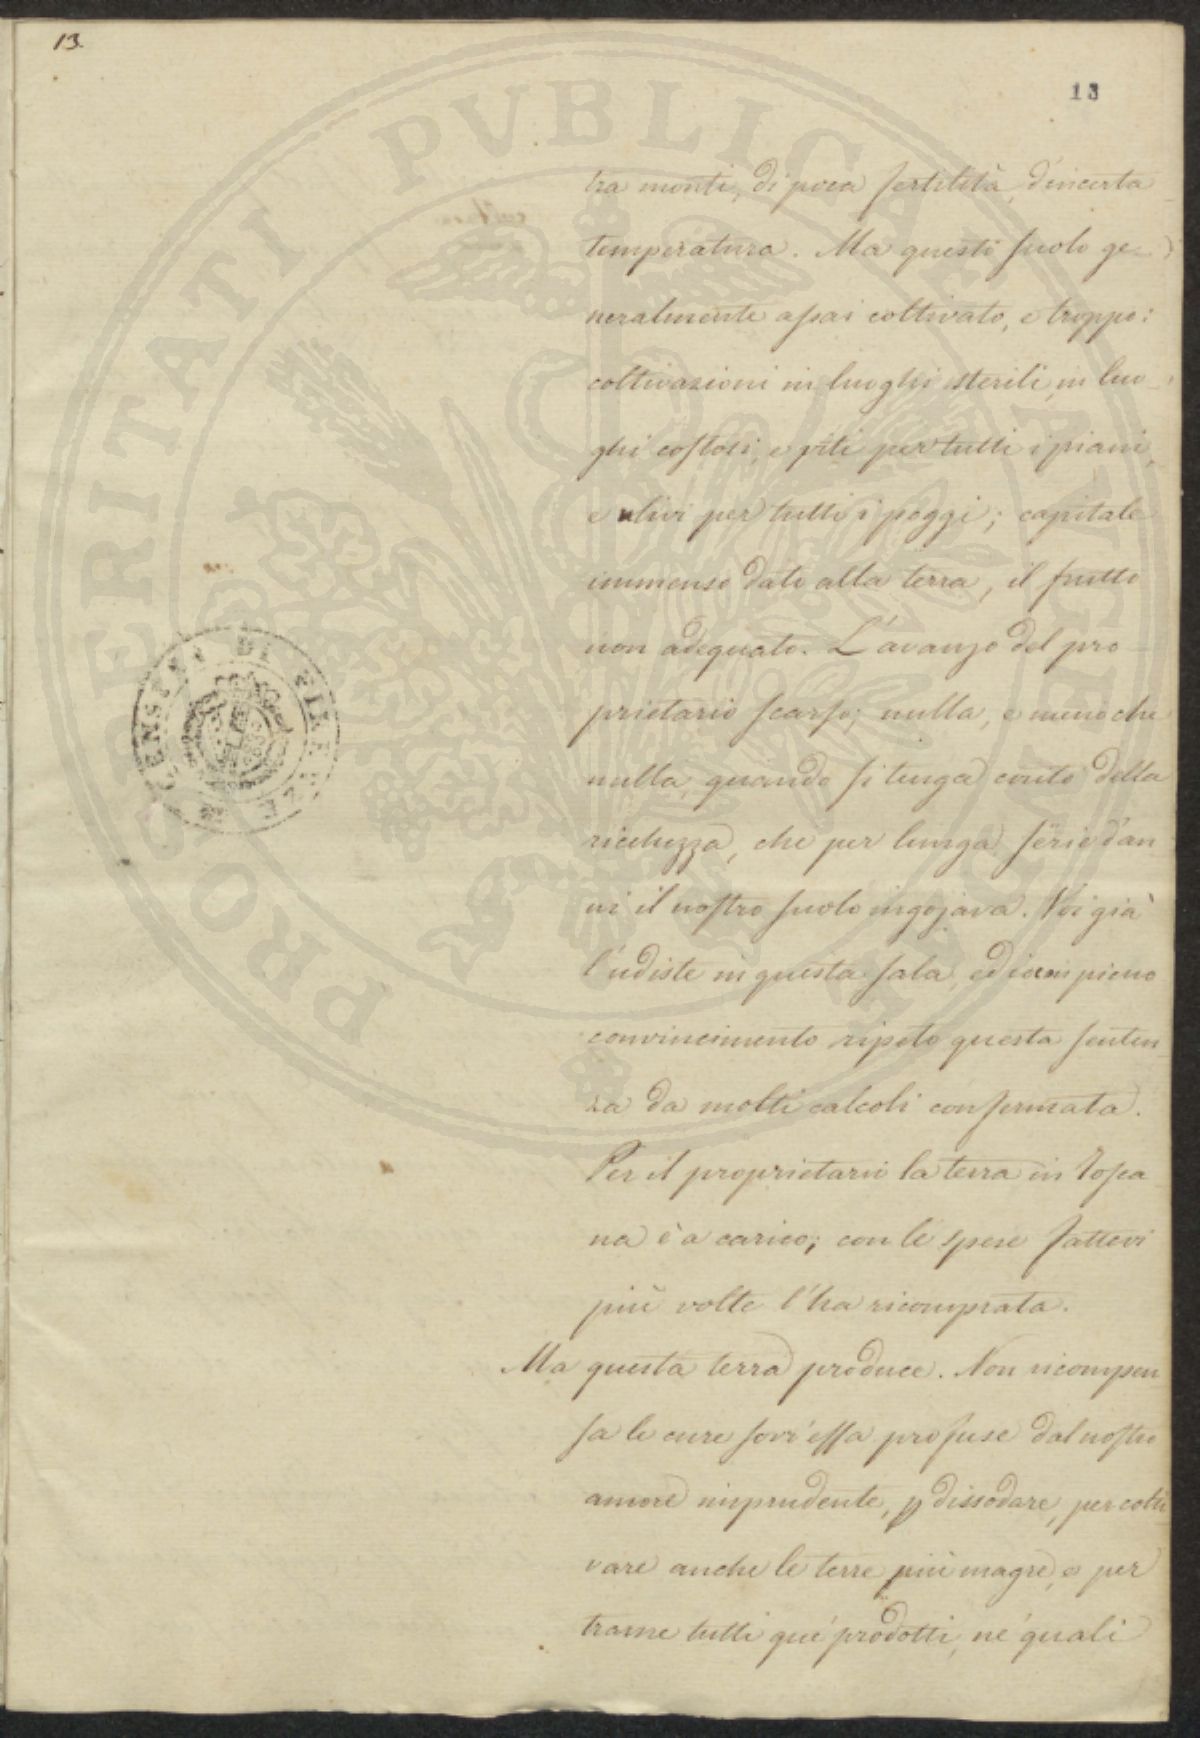 13.
13
tra monti, di poca fertilità, d'incerta
temperatura. Ma questo suolo ge-
neralmente assai coltivato, e troppo:
coltivazioni in luoghi sterili, in luo-
ghi costosi, e viti per tutti i piani,
e ulivi per tutti i poggi; capitale
immenso dato alla terra, il frutto
non adeguato. L'avanzo del pro-
prietario scarso; nulla, e meno che
nulla, quando si tenga conto della
ricchezza, che per lunga serie d'an
ni il nostro suolo ingojava. Voi già
l'udiste in questa sala, ed io con pieno
convincimento ripeto questa senten
za da molti calcoli confermata.
Per il proprietario la terra in Tosca
na è a carico; con le spese fattevi
più volte l'ha ricomprata.
Ma questa terra produce. Non ricompen
sa le cure sovr'essa profuse dal nostro
amore imprudente, p dissodare, per colti
vare anche le terre più magre, e per
trarne tutti que' prodotti, ne' quali
PROSPERITATI PVBLICAE AVGENDAE
DI FIRENZE